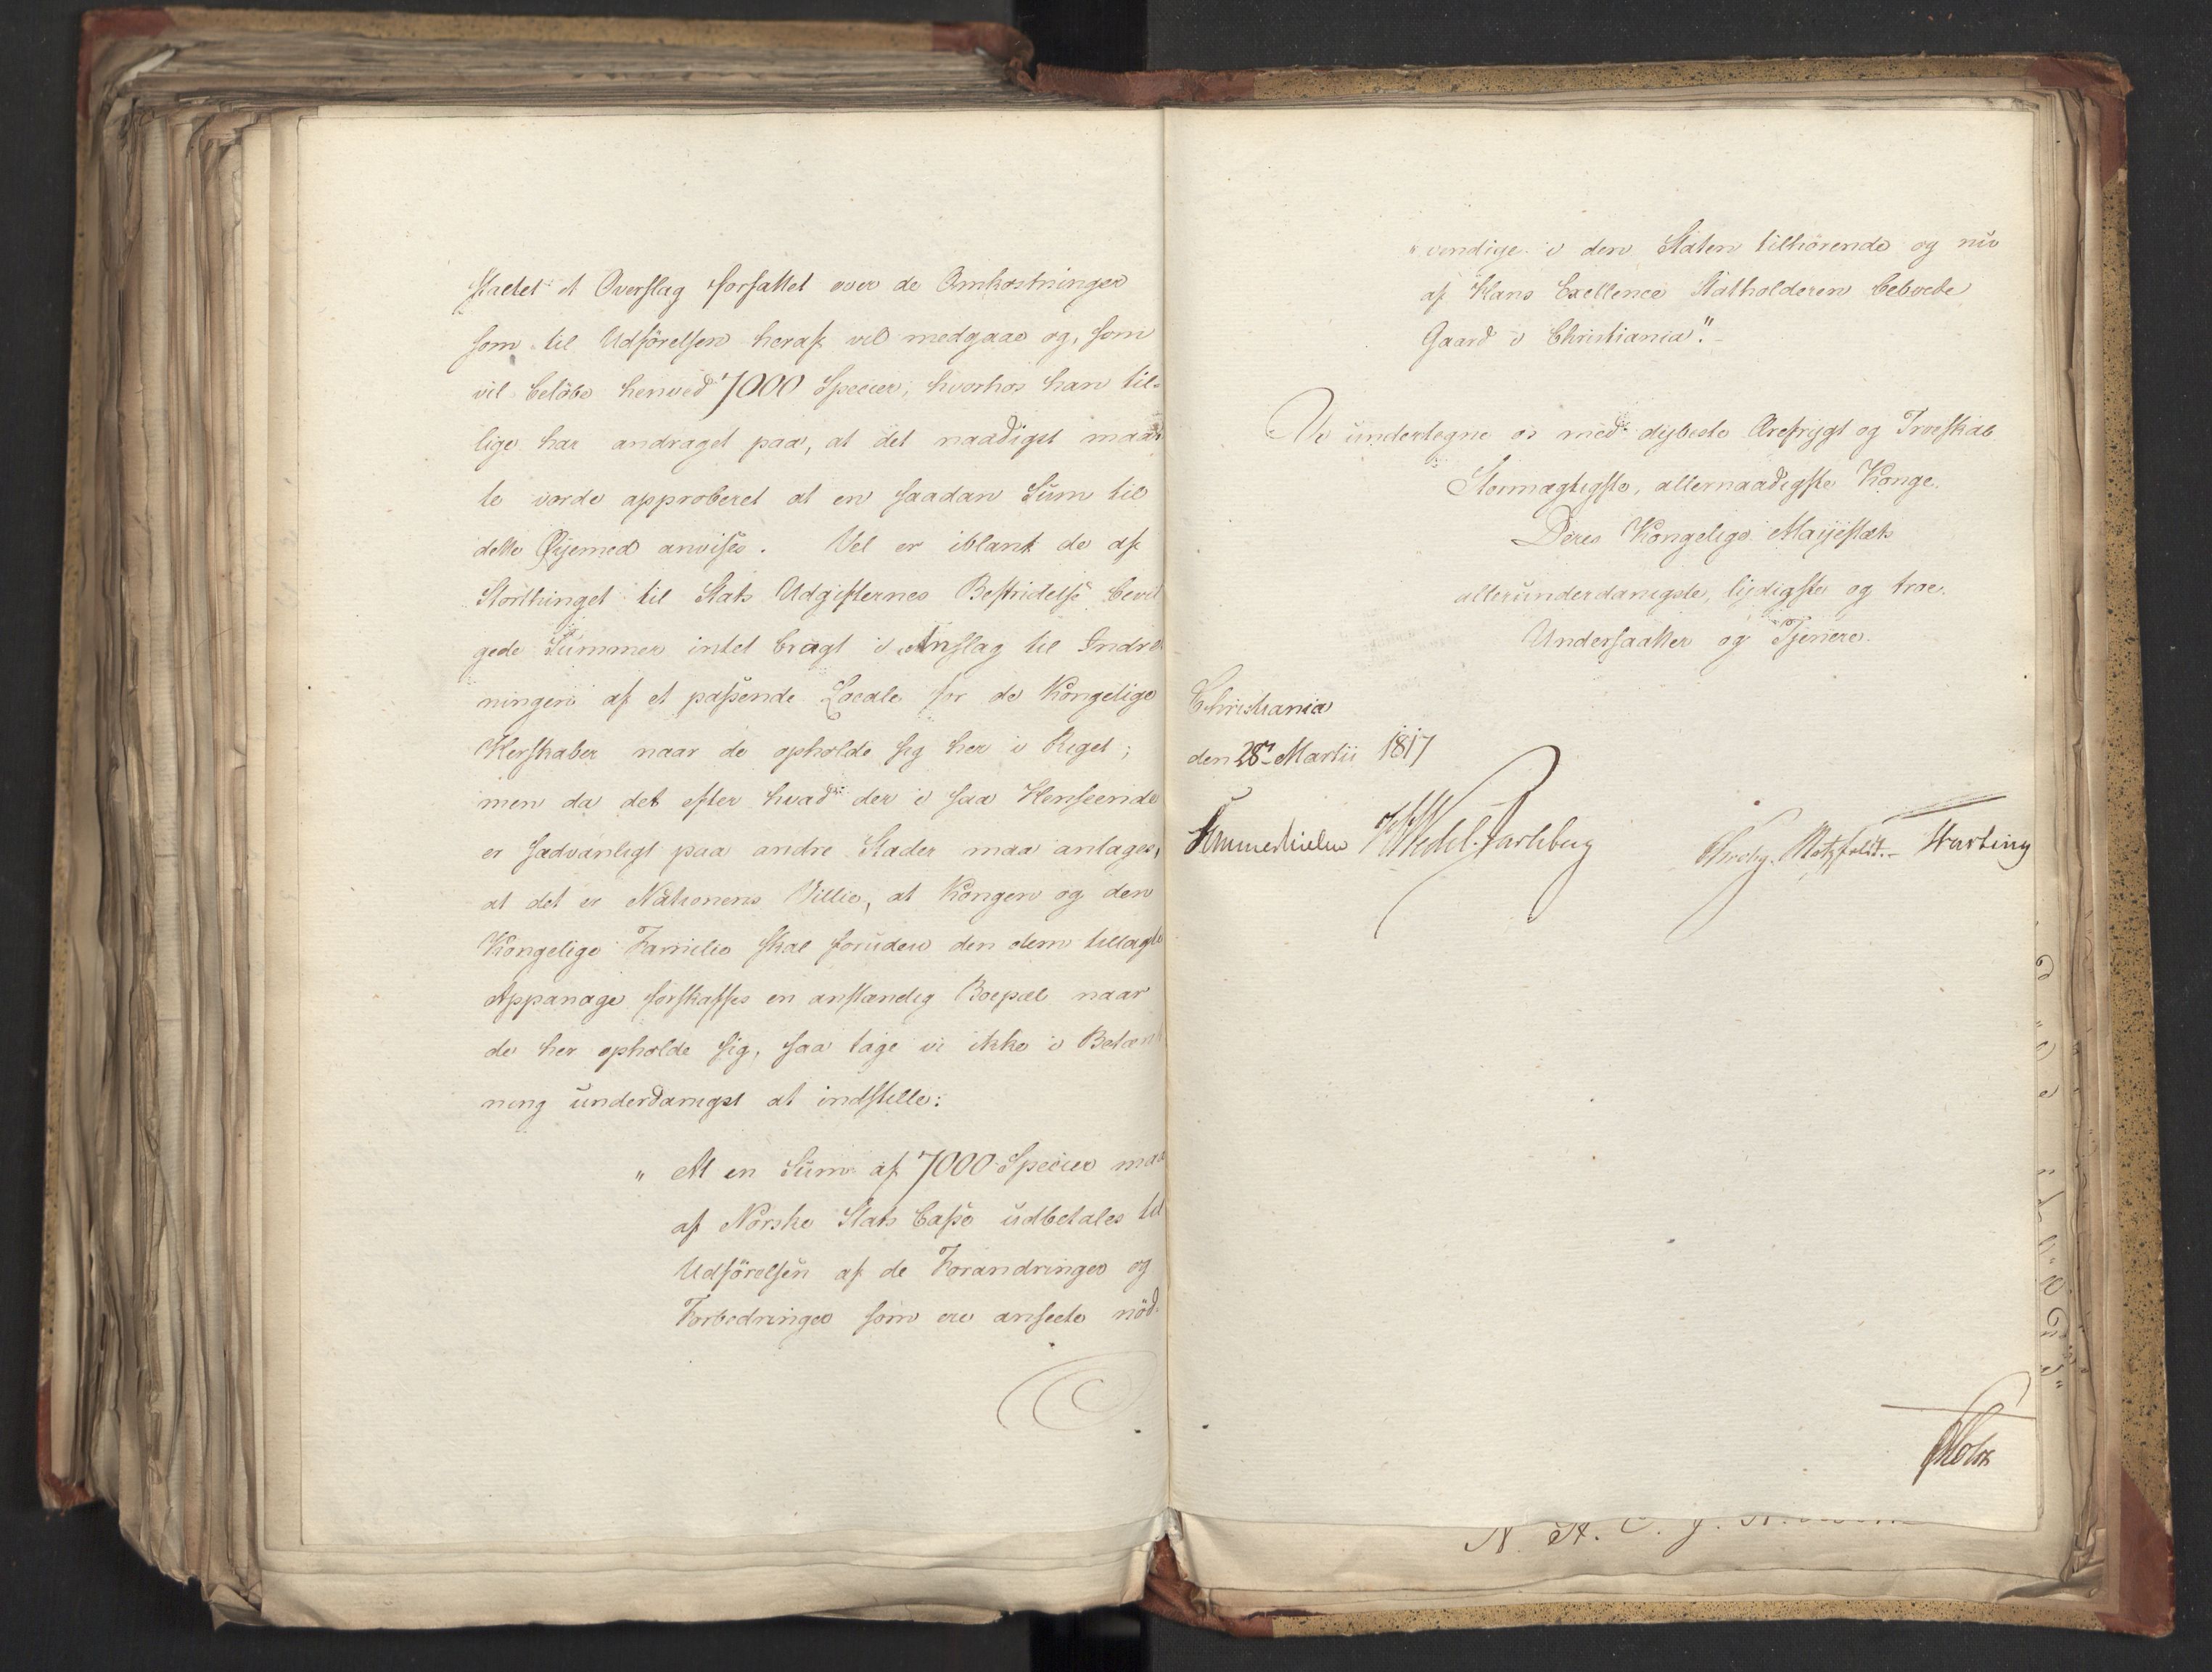 staltet et Overslag forfattet over de Omkostninger
som til Udførelsen heraf vil medgaae og, som
vil beløbe henved 7000 Specier, hvorhos han til-
lige har andraget paa, at det naadigst maat
te vorde approberet at en saadan Sum til
dette Øjemed anvises. Vel er iblant de af
Storthinget til Stats Udgifternes Bestridelse bevil
gede Summer intet bragt i Anslag til Indret
ningen af et passende Locale for de Kongelige
Herskaber naar de opholde sig her i Riget;
men da det efter hvad der i saa Henseende
er sædvanligt paa andre Stæder maa antages,
at det er Nationens Villie, at Kongen og den
Kongelige Familie skal foruden den dem tillagte
Appanage forskaffes en anstændig Boepæl naar
de her opholde sig, saa tage vi ikke i Betænk
ning underdanigst at indstille:
" At en Sum af 7000 Specier maa
af Norske Stats Casse udbetales til
Udførelsen af de Forandringer og
Forbedringer som ere anseete nød-
"vendige i den Staten tilhørende og nu
af Hans Excellence Statholderen beboede
Gaard i Christiania".-
Vi undertegne os med dybeste Ærefrygt og Troeskab
Stormægtigste, allernaadigste Konge.
Deres Kongelige Majestæts
allerunderdanigste, lydigste og troe.
Undersaatter og Tjenere.
Christiania
den 28de Martii 1817
Sommerhielm Wedel-Jarlsberg Krohg. Motzfeldt.- Hartvig
Holst
N. A.